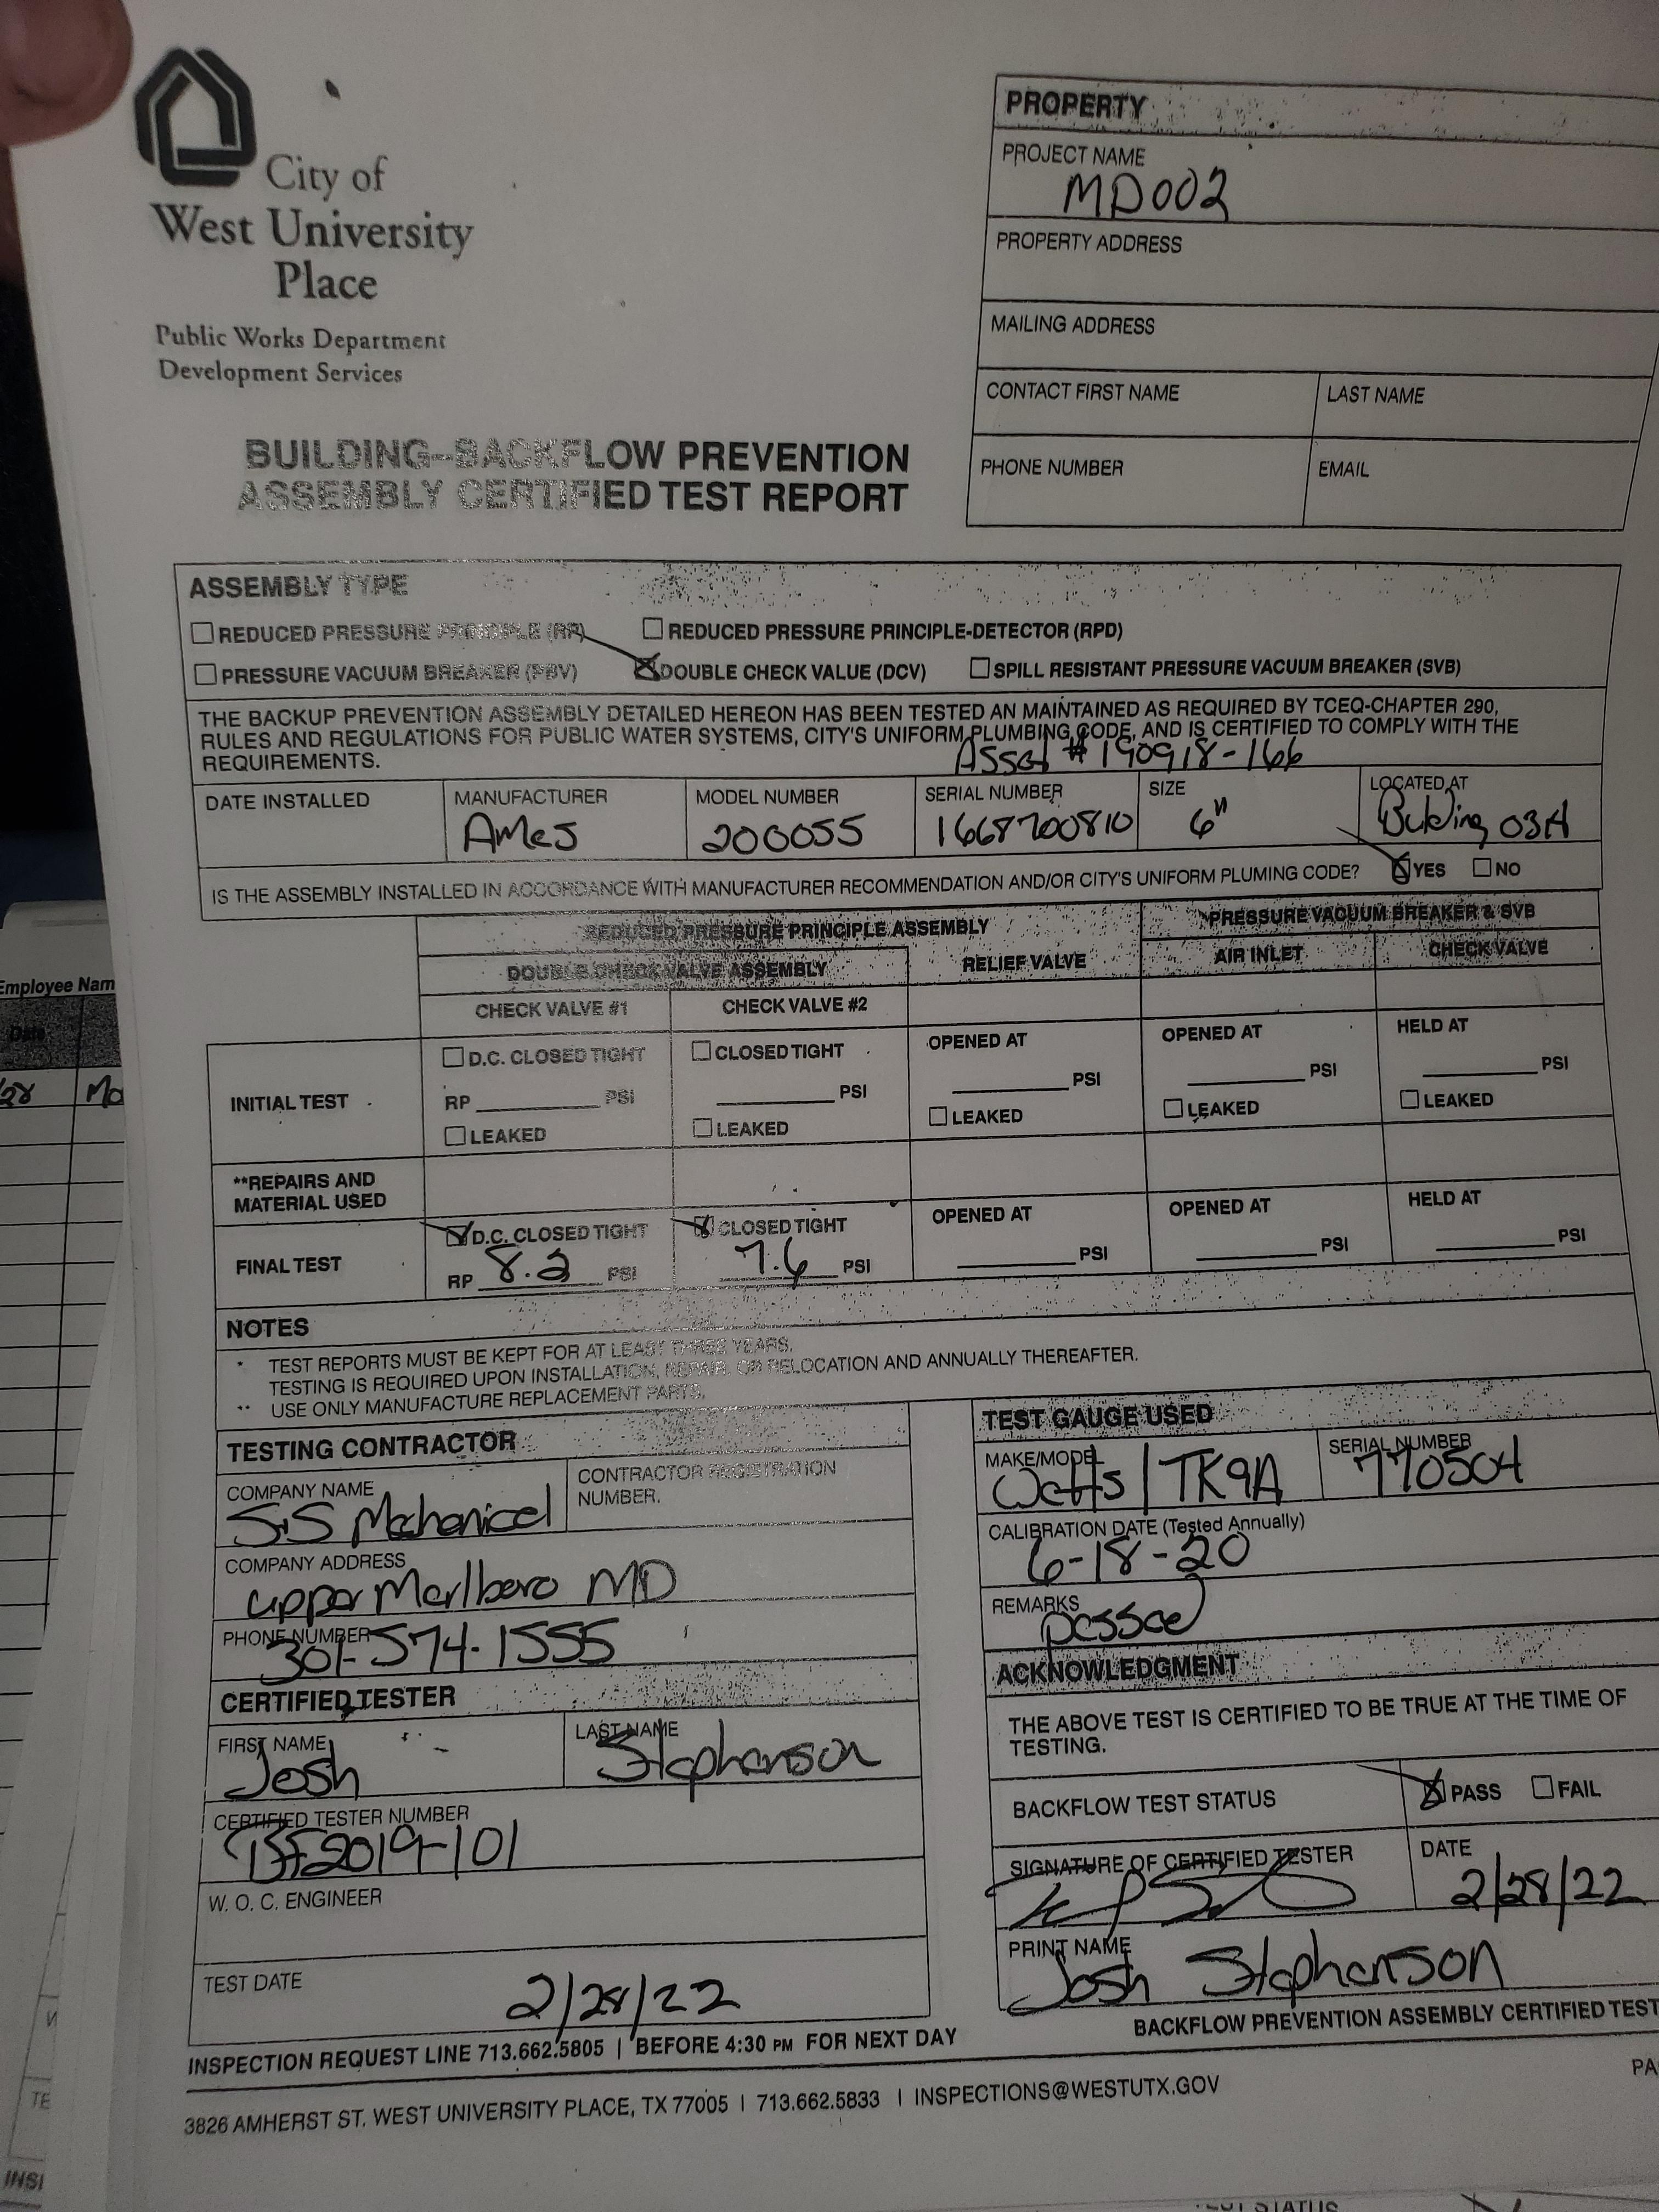 City of
West University
Place
Public Works Department
Development Services
BUILDING–BACKFLOW PREVENTION
ASSEMBLY CERTIFIED TEST REPORT
PROPERTY
PROJECT NAME
MD002
PROPERTY ADDRESS
MAILING ADDRESS
CONTACT FIRST NAME LAST NAME
PHONE NUMBER EMAIL
ASSEMBLY TYPE
REDUCED PRESSURE PRINCIPLE (RP) REDUCED PRESSURE PRINCIPLE-DETECTOR (RPD)
PRESSURE VACUUM BREAKER (PBV) DOUBLE CHECK VALUE (DCV) SPILL RESISTANT PRESSURE VACUUM BREAKER (SVB)
THE BACKUP PREVENTION ASSEMBLY DETAILED HEREON HAS BEEN TESTED AN MAINTAINED AS REQUIRED BY TCEQ-CHAPTER 290,
RULES AND REGULATIONS FOR PUBLIC WATER SYSTEMS, CITY'S UNIFORM PLUMBING CODE, AND IS CERTIFIED TO COMPLY WITH THE
REQUIREMENTS.
Asset #190918-166
DATE INSTALLED MANUFACTURER MODEL NUMBER SERIAL NUMBER SIZE LOCATED AT
Ames 200055 1668700810 6" Building 03A
IS THE ASSEMBLY INSTALLED IN ACCORDANCE WITH MANUFACTURER RECOMMENDATION AND/OR CITY'S UNIFORM PLUMING CODE? YES NO
REDUCED PRESSURE PRINCIPLE ASSEMBLY PRESSURE VACUUM BREAKER & SVB
DOUBLE CHECK VALVE ASSEMBLY RELIEF VALVE AIR INLET CHECK VALVE
CHECK VALVE #1 CHECK VALVE #2
INITIAL TEST
D.C. CLOSED TIGHT CLOSED TIGHT OPENED AT OPENED AT HELD AT
RP PSI PSI PSI PSI PSI
LEAKED LEAKED LEAKED LEAKED LEAKED
**REPAIRS AND
MATERIAL USED
FINAL TEST
D.C. CLOSED TIGHT CLOSED TIGHT OPENED AT OPENED AT HELD AT
RP 8.2 PSI 7.6 PSI PSI PSI PSI
NOTES
* TEST REPORTS MUST BE KEPT FOR AT LEAST THREE YEARS.
TESTING IS REQUIRED UPON INSTALLATION, REPAIR, OR RELOCATION AND ANNUALLY THEREAFTER.
** USE ONLY MANUFACTURE REPLACEMENT PARTS.
TESTING CONTRACTOR
COMPANY NAME CONTRACTOR REGISTRATION
NUMBER.
S.S Mechanical
COMPANY ADDRESS
upper Marlboro MD
PHONE NUMBER
301-574-1555
CERTIFIED TESTER
FIRST NAME LAST NAME
Josh Stephenson
CERTIFIED TESTER NUMBER
BF2019-101
W. O. C. ENGINEER
TEST DATE
2/28/22
TEST GAUGE USED
MAKE/MODEL SERIAL NUMBER
Watts / TK9A 770504
CALIBRATION DATE (Tested Annually)
6-18-20
REMARKS
passed
ACKNOWLEDGMENT
THE ABOVE TEST IS CERTIFIED TO BE TRUE AT THE TIME OF
TESTING.
BACKFLOW TEST STATUS PASS FAIL
SIGNATURE OF CERTIFIED TESTER DATE
2/28/22
PRINT NAME
Josh Stephenson
INSPECTION REQUEST LINE 713.662.5805 | BEFORE 4:30 PM FOR NEXT DAY
BACKFLOW PREVENTION ASSEMBLY CERTIFIED TEST
3826 AMHERST ST. WEST UNIVERSITY PLACE, TX 77005 | 713.662.5833 | INSPECTIONS@WESTUTX.GOV
Employee Nam
Date